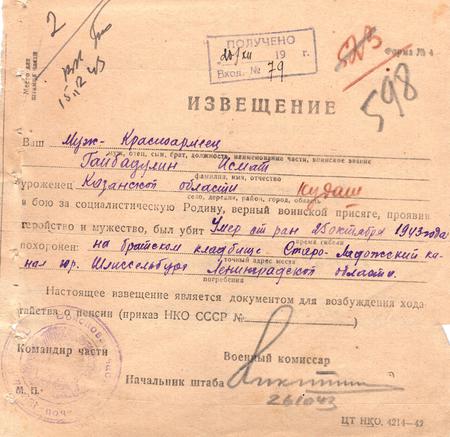 2
Место для
штампа части
15.12.43
ПОЛУЧЕНО
20/XII 19 г.
Вход. № 79
523
Форма № 4
598
ИЗВЕЩЕНИЕ
Ваш Муж - Красноармеец
муж, отец, сын, брат, должность, наименование части, воинское звание
Гайбадулин Исмат
фамилия, имя, отчество
уроженец Казанской области Кудаш
село, деревня, район, город, область
в бою за социалистическую Родину, верный воинской присяге, проявив
геройство и мужество, был убит Умер от ран 25 октября 1943 года
время гибели
похоронен: на братском кладбище Старо-Ладожский ка-
точный адрес места
нал гор. Шлиссельбург Ленинградской области.
погребения
Настоящее извещение является документом для возбуждения хода-
тайства о пенсии (приказ НКО СССР № )
Командир части
Военный комиссар
Начальник штаба
М. П.
261043
ЦТ НКО. 4214—42